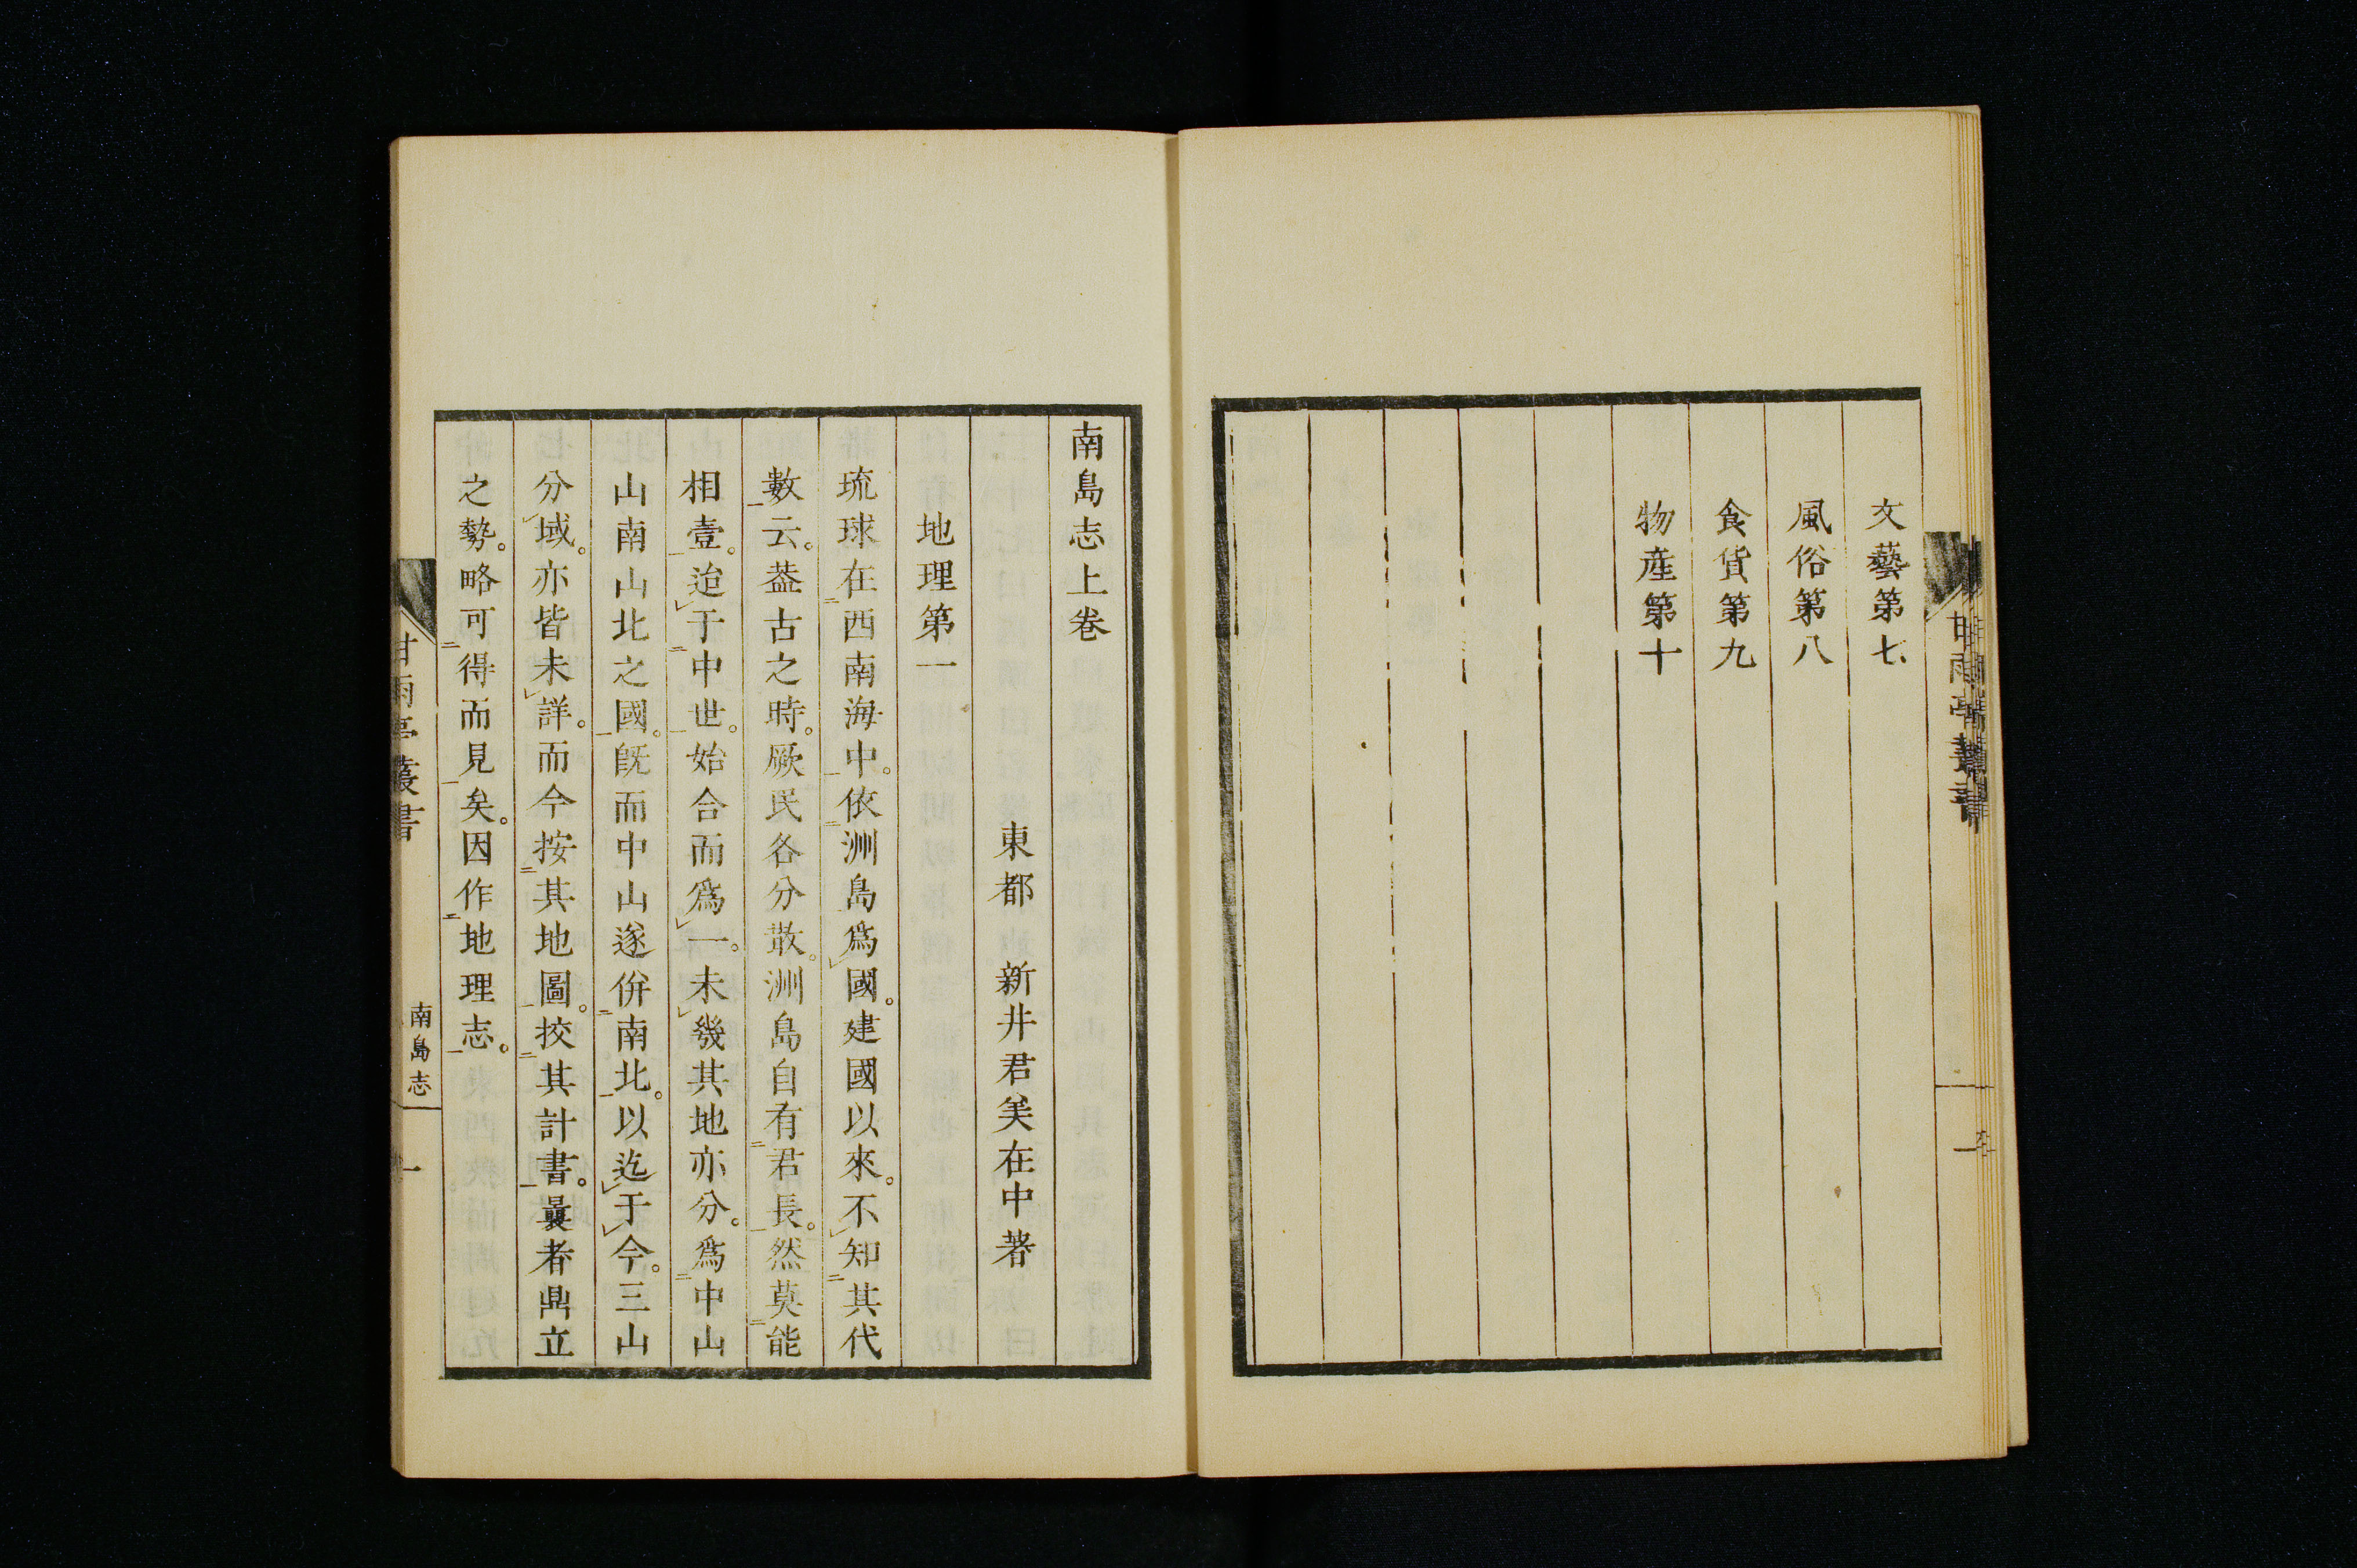 文藝第七
風俗第八
食貨第九
物産第十
南島志上卷
東都　新井君美在中著
地理第一
琉球在二西南海中一。依二洲島一爲レ國。建國以來。不レ知二其代
數一云。葢古之時。厥民各分散。洲島自有二君長一。然莫二能
相壹一。迨レ于二中世一。始合而爲レ一。未レ幾其地亦分。爲二中山
山南山北之國一。旣而中山遂併二南北一。以迄レ于レ今。三山
分レ域。亦皆未レ詳。而今按二其地圖一。挍二其計書一。曩者鼎立
之勢。略可二得而見一矣。因作二地理志一。
甘雨亭叢書
南島志
一